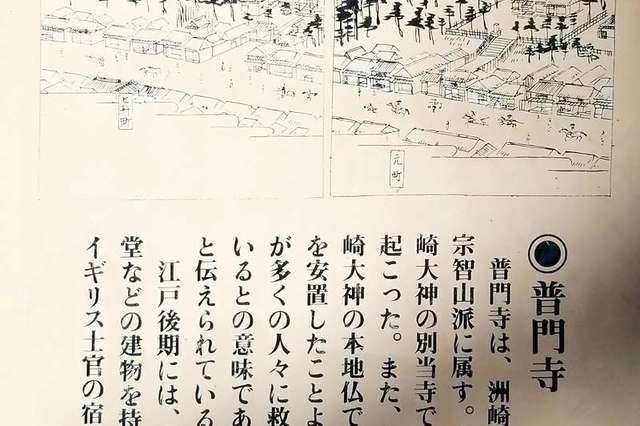 元町
◉普門寺
普門寺は、洲崎
宗智山派に属す。
崎大神の別当寺で
起こった。また、
崎大神の本地仏で
を安置したことよ
が多くの人々に救
いるとの意味であ
と伝えられている
江戸後期には、
堂などの建物を持
イギリス士官の宿